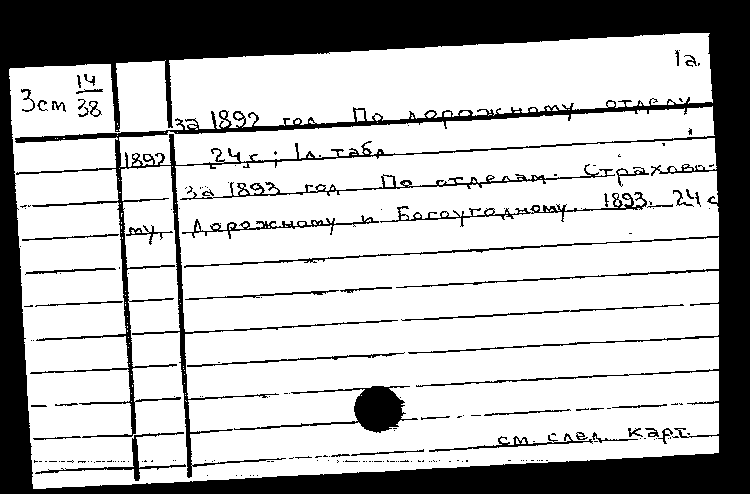 1а.
Зсм 14/38
за 1892 год. По дорожному отделу
1892 24 с.; 1 л. табл
за 1893 год По отделам: Страхово-
му, Дорожному и Богоугодному. 1893. 24 с
см. след. карт.